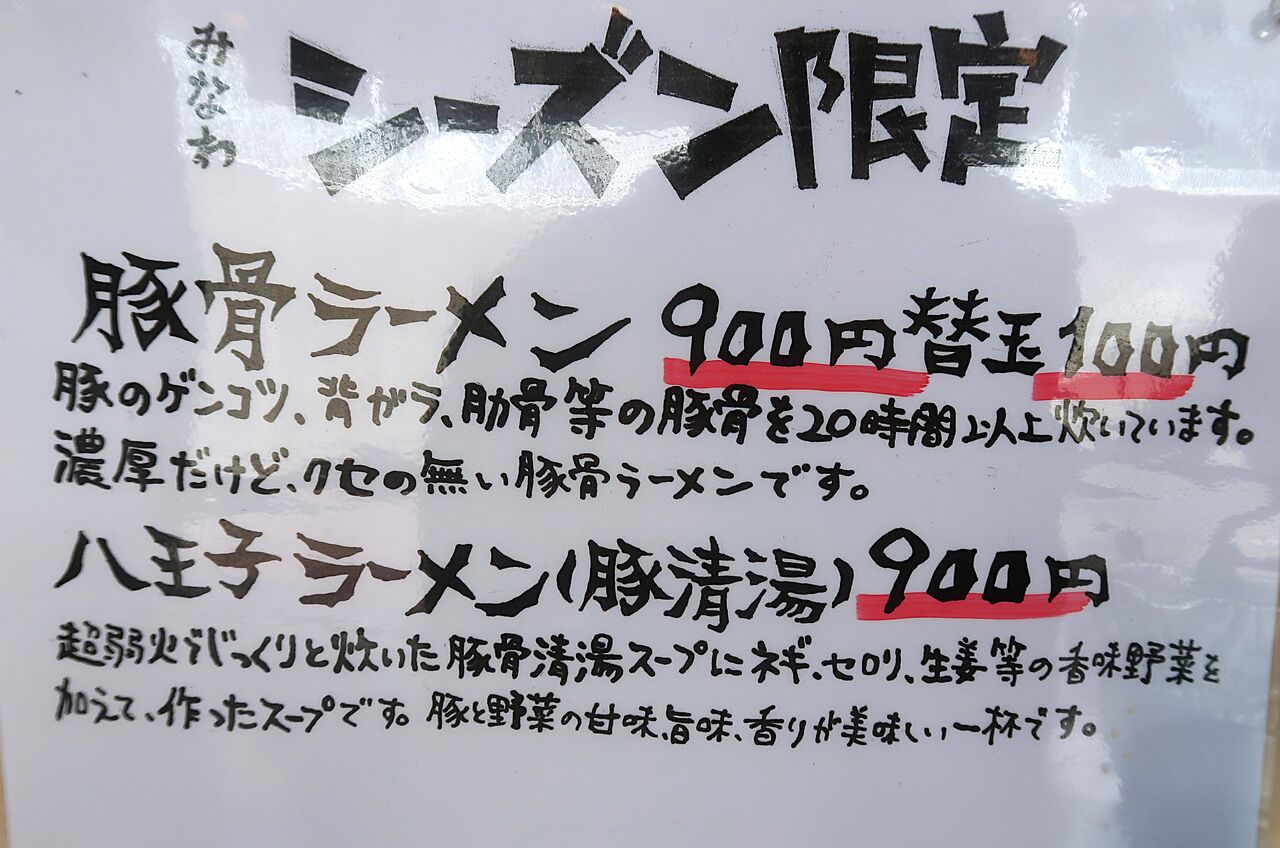 みなわ
シーズン限定
豚骨ラーメン 900円 替玉 100円
豚のゲンコツ、背ガラ、肋骨等の豚骨を20時間以上炊いています。
濃厚だけど、クセの無い豚骨ラーメンです。
八王子ラーメン(豚清湯) 900円
超弱火でじっくりと炊いた豚骨清湯スープにネギ、セロリ、生姜等の香味野菜を
加えて、作ったスープです。豚と野菜の甘味、旨味、香りが美味しい一杯です。